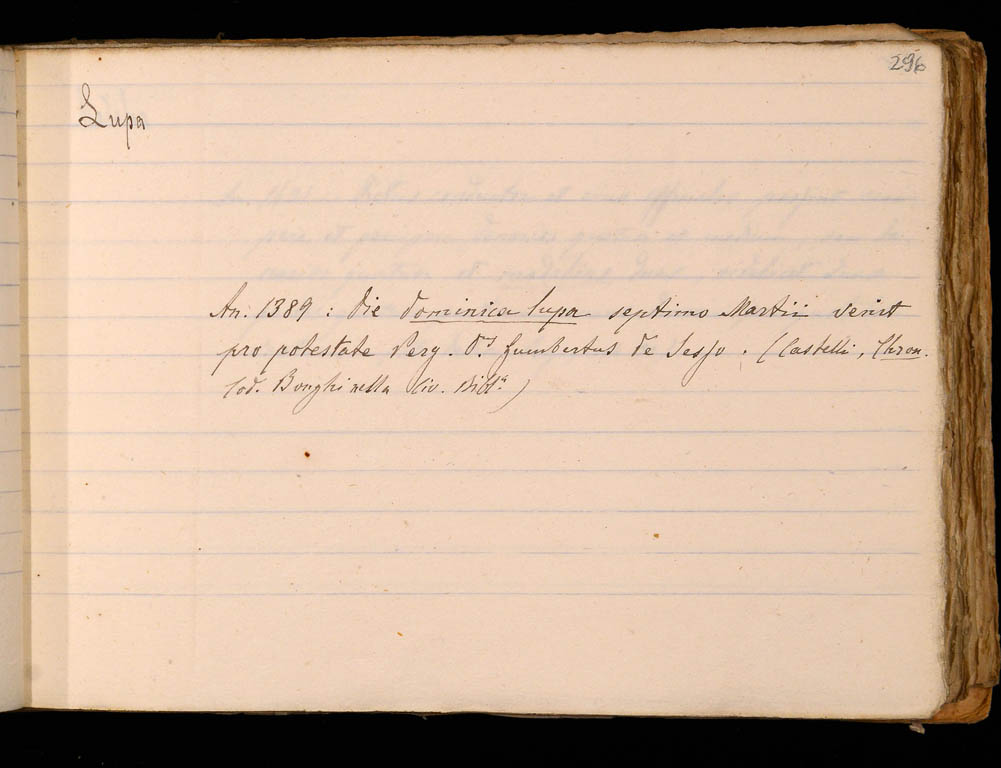 296
Lupa
An. 1389 : die dominica lupa septimo Martii venit
pro potestate Perg. D.s Gumbertus de Sesso. (Castelli, Chron.
Cod. Civ. Bibl.)